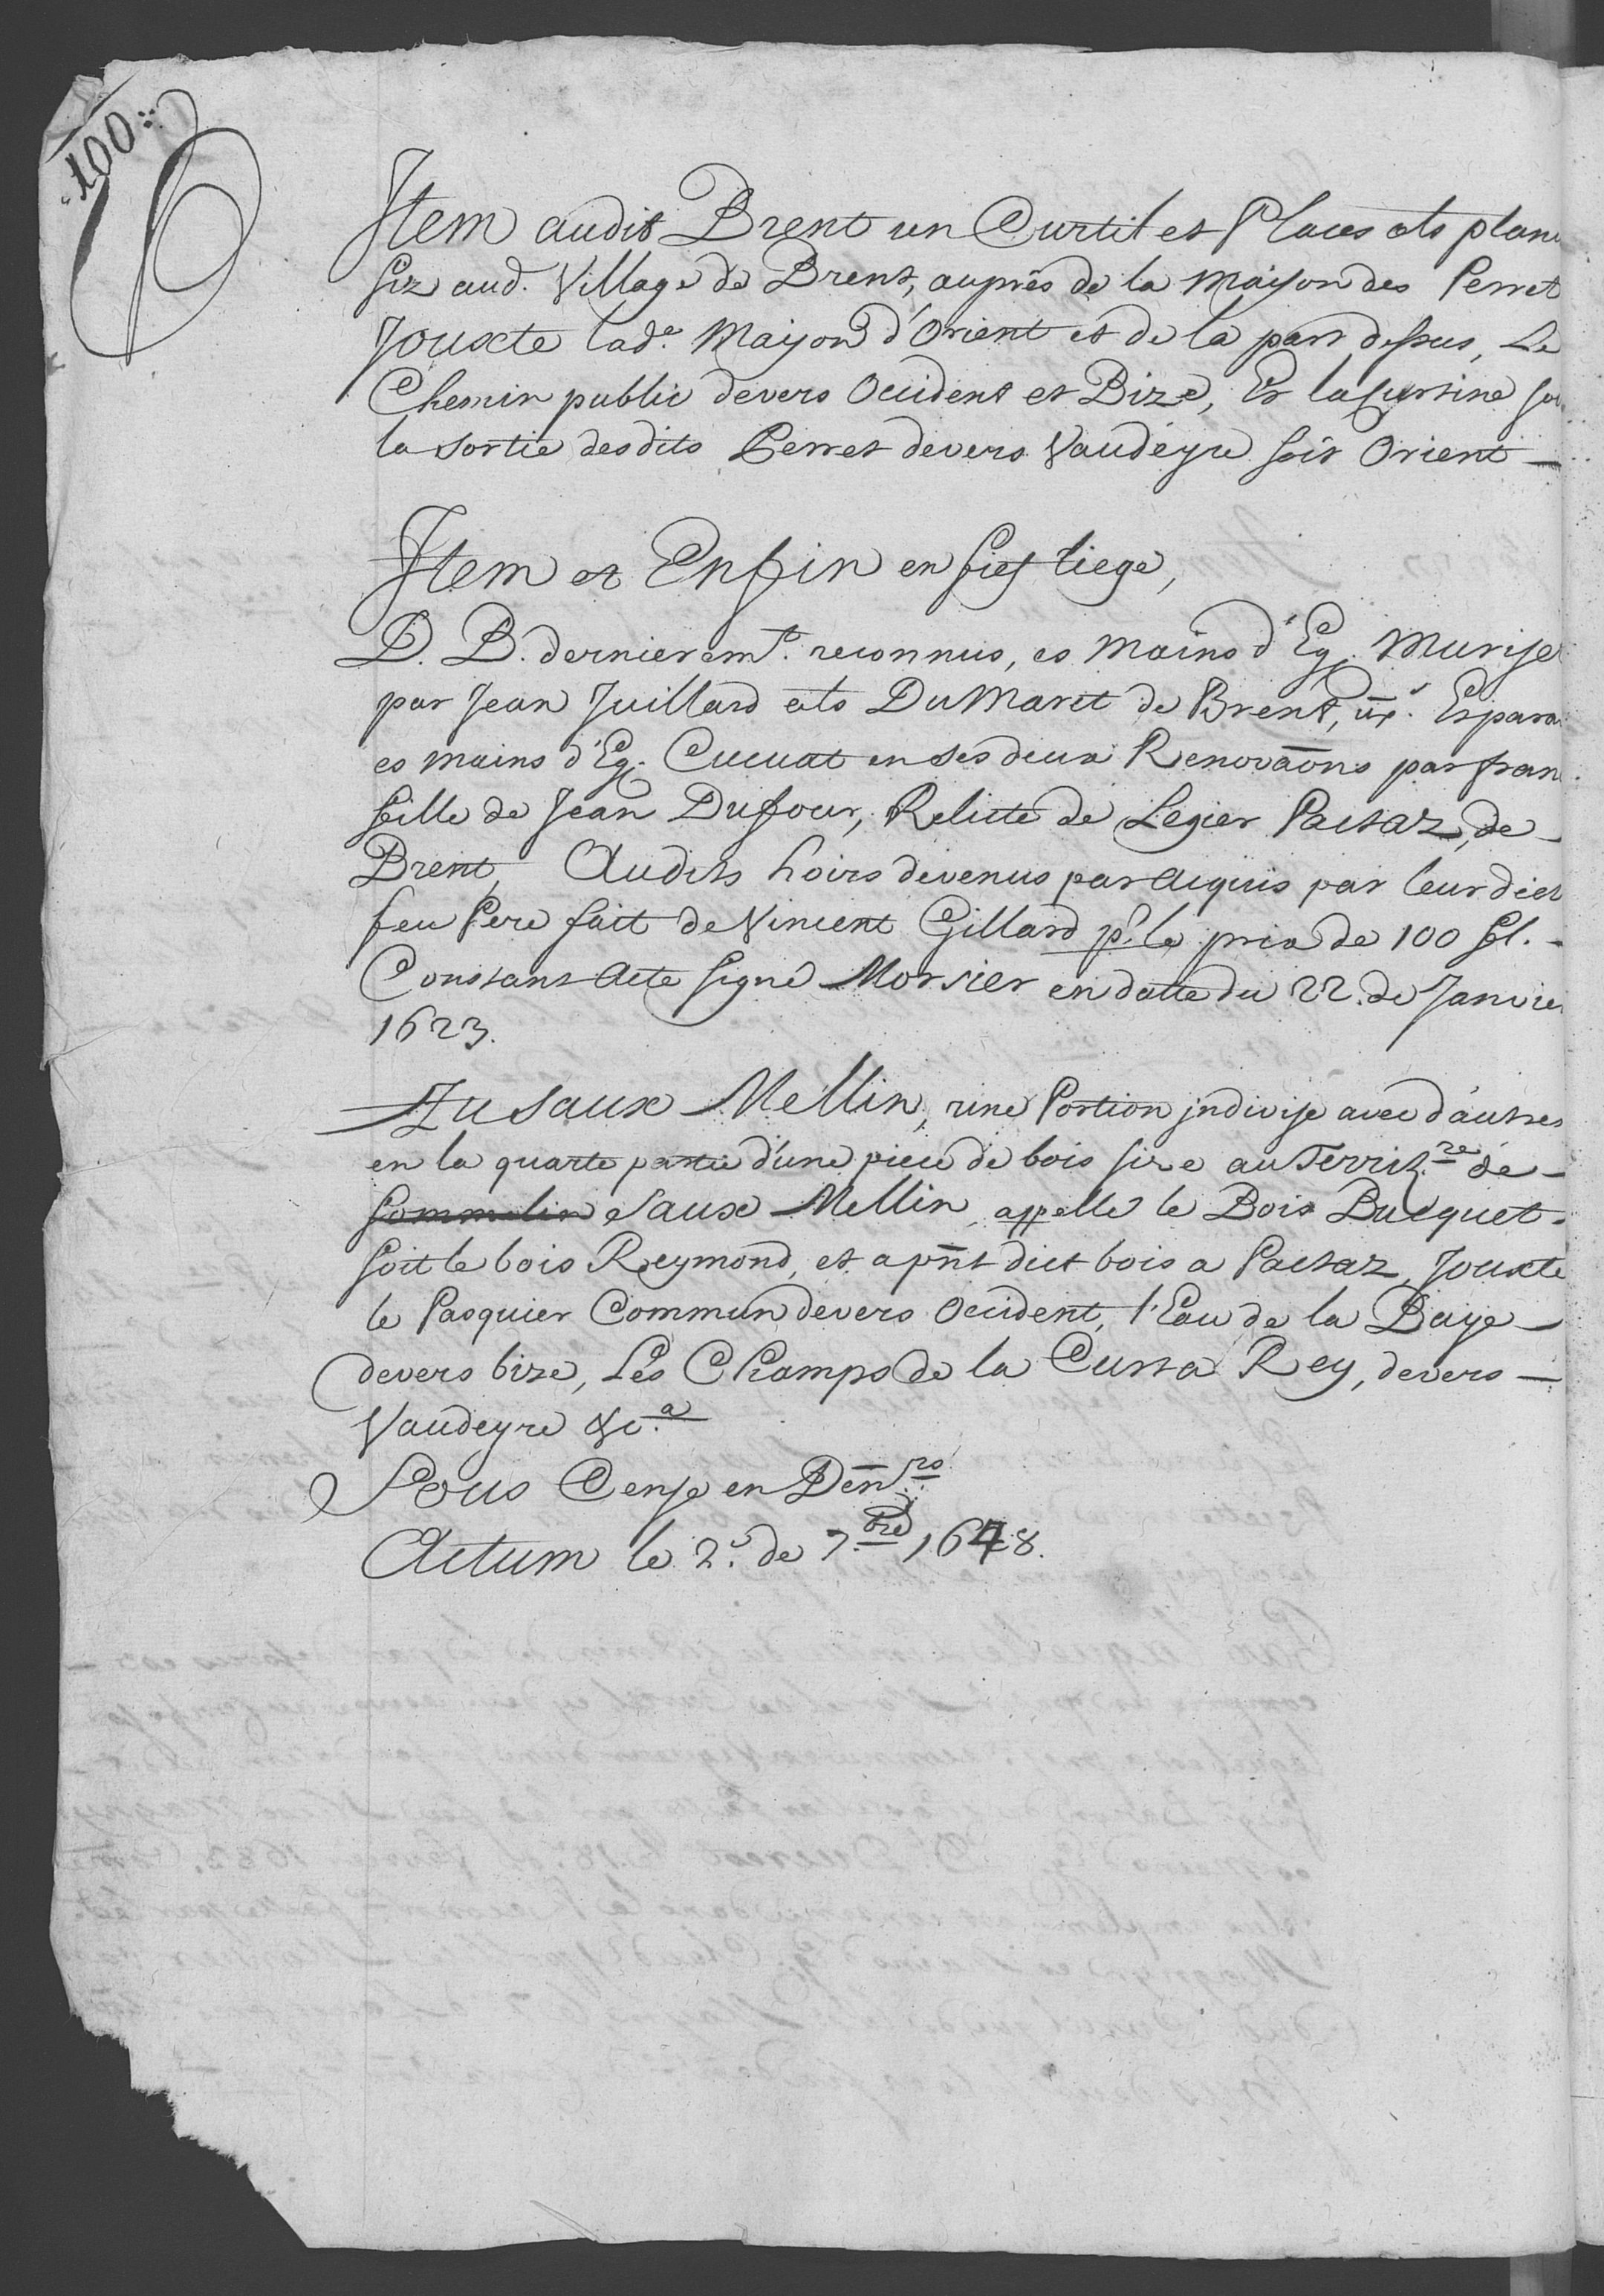 100
Item audit Brent un Curtil et Places als plan
siz aud. Village de Brent, auprés de la Maison des Perret
Jouxte lad.e Maison d'Orient et de la part dessus, Le
Chemin public devers Occident et Bize, Et la Curtine
la sortie desdits Perret devers Vaudeyre soit Orient
Item et Enfin en fief liege,
D. B. dernierem.t reconnus, es Mains d'Eg. Muriset
par Jean Juillard als Du Maret de Brent, ux.
es mains d'Eg. Cucuat en ses deux Renovaōns par fran
fille de Jean Dufour, Relicte de Legier Pactaz, de
Brent, Audits hoirs devenus par acquis par leur dict
feu Pere fait de Vincent Gillard p.r le prix de 100 fl.
Constant Acte signé Morsier en datte du 22. de Janvier
1623.
Zu Saux Mellin, une Portion jndivise avec d'autres
en la quarte partie d'une piece de bois size au Territ.re de
Sommelin Saux Mellin, appellé le Bois Bucquet
soit le bois Reymond, et apn̄t dict bois a Pactaz, Jouxte
le Pasquier Commun devers Occident, l'Eau de la Baye
devers bize, Les Champs de la Cursa Rey, devers
Vaudeyre &c.a
Sous Cense en Den.rs
Actum le 2.e de 7.bre 1648.